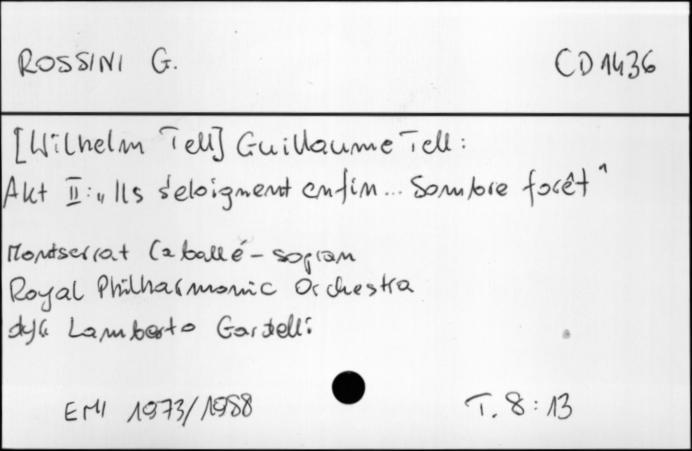 ROSSINI G. CD 1436
[Wilhelm Tell] Guillaume Tell:
Akt II: „Ils s'eloignent enfin... Sombre forêt"
Montserrat Caballé - sopran
Royal Philharmonic Orchestra
dyr. Lamberto Gardelli
EMI 1973/1988 T. 8:13